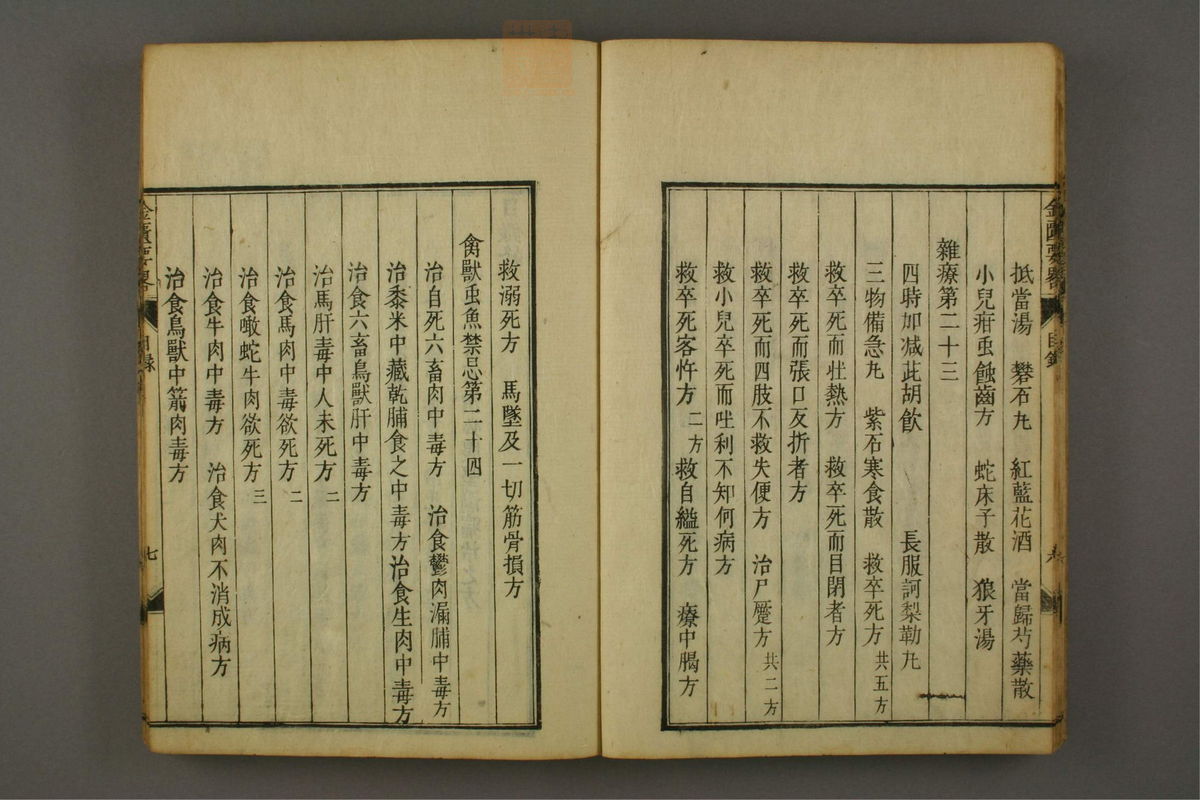 抵當湯　礬石丸　紅藍花酒　當歸芍藥散
小兒疳䖝蝕齒方　蛇床子散　狼牙湯
雜療第二十三
四時加减茈胡飲　長服訶梨勒丸
三物備急丸　紫石寒食散　救卒死方共五方
救卒死而壯熱方　救卒死而目閉者方
救卒死而張口反折者方
救卒死而四肢不救失便方　治尸蹷方共二方
救小兒卒死而吐利不知何病方
救卒死客忤方二方　救自縊死方　療中暍方
救溺死方　馬墜及一切筋骨損方
禽獸䖝魚禁忌第二十四
治自死六畜肉中毒方　治食鬱肉漏脯中毒方
治黍米中藏乾脯食之中毒方治食生肉中毒方
治食六畜鳥獸肝中毒方
治馬肝毒中人未死方二
治食馬肉中毒欲死方二
治食噉蛇牛肉欲死方三
治食牛肉中毒方　治食犬肉不消成病方
治食鳥獸中箭肉毒方
金匱要畧　目録　七